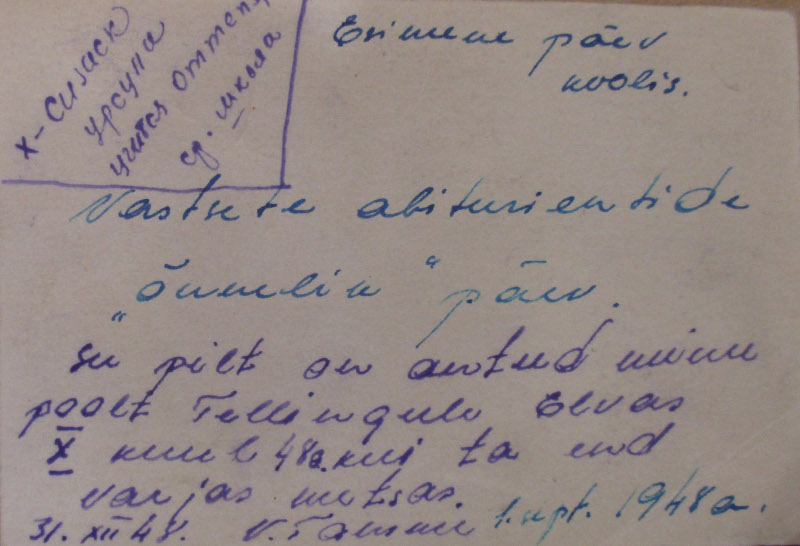 х- Силаск
Урсула
учится Оттепя
ср. школа
Esimene päev
koolis.
Vastsete abiturientide
„õnnelik“ päev.
See pilt on antud minu
poolt Tellingule Elvas
X kuul 48a. kui ta end
varjas metsas.
31. XII 48. V. Tamme 1. sept. 1948 a.